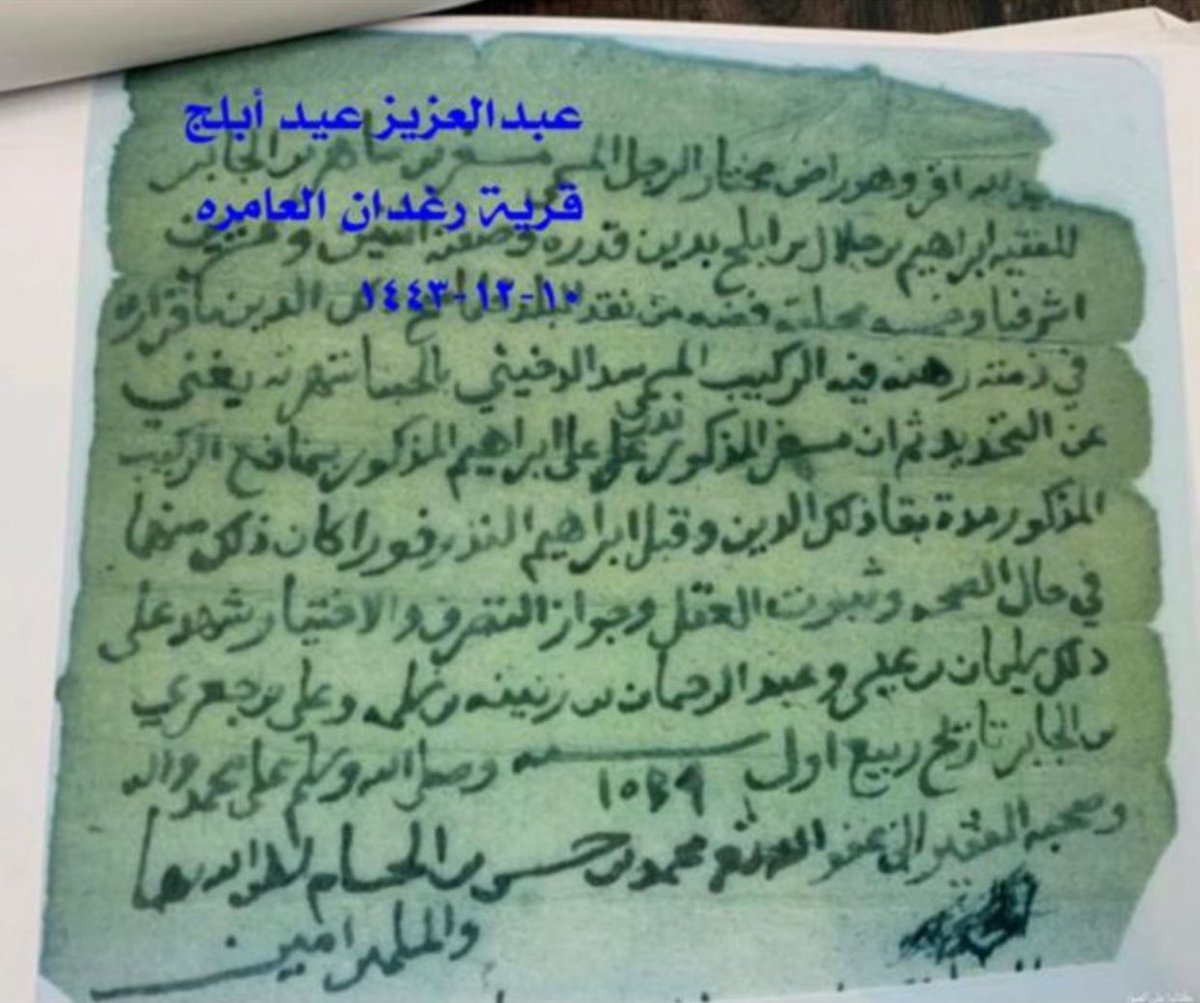 عبدالعزيز عيد أبلج
الحمد لله اقر وهو راض مختار الرجل المسمى مسفر بن بن الجابر
قرية رغدان العامره
للفقيه ابراهيم بن جلال بن ابلج بدين قدره وصفته
١٠-١٢-١٤٤٣
اشرفيا فضه من نقد الدين باقراره
في ذمته رهنه فيه الركيب المسمى بالحبنا شهرته يغني
عن التحديد ثم ان مسفر المذكور نذر على ابراهيم المذكور بمنافع الركيب
المذكور مدة بقا ذلك الدين وقبل ابراهيم النذر فورا كان ذلك منهما
في حال الصحه وثبوت العقل وجواز التصرف والاختيار شهد على
ذلك سليمان بن علي وعبد الرحمان بن وعلي بن جعري
بن الجابر تاريخ ربيع اول سنه ١٠٦٩ وصلى الله وسلم على محمد واله
وصحبه الفقير الى عفو الله محمد بن حسن بن الحسام لطف الله بهما
والمسلمين امين